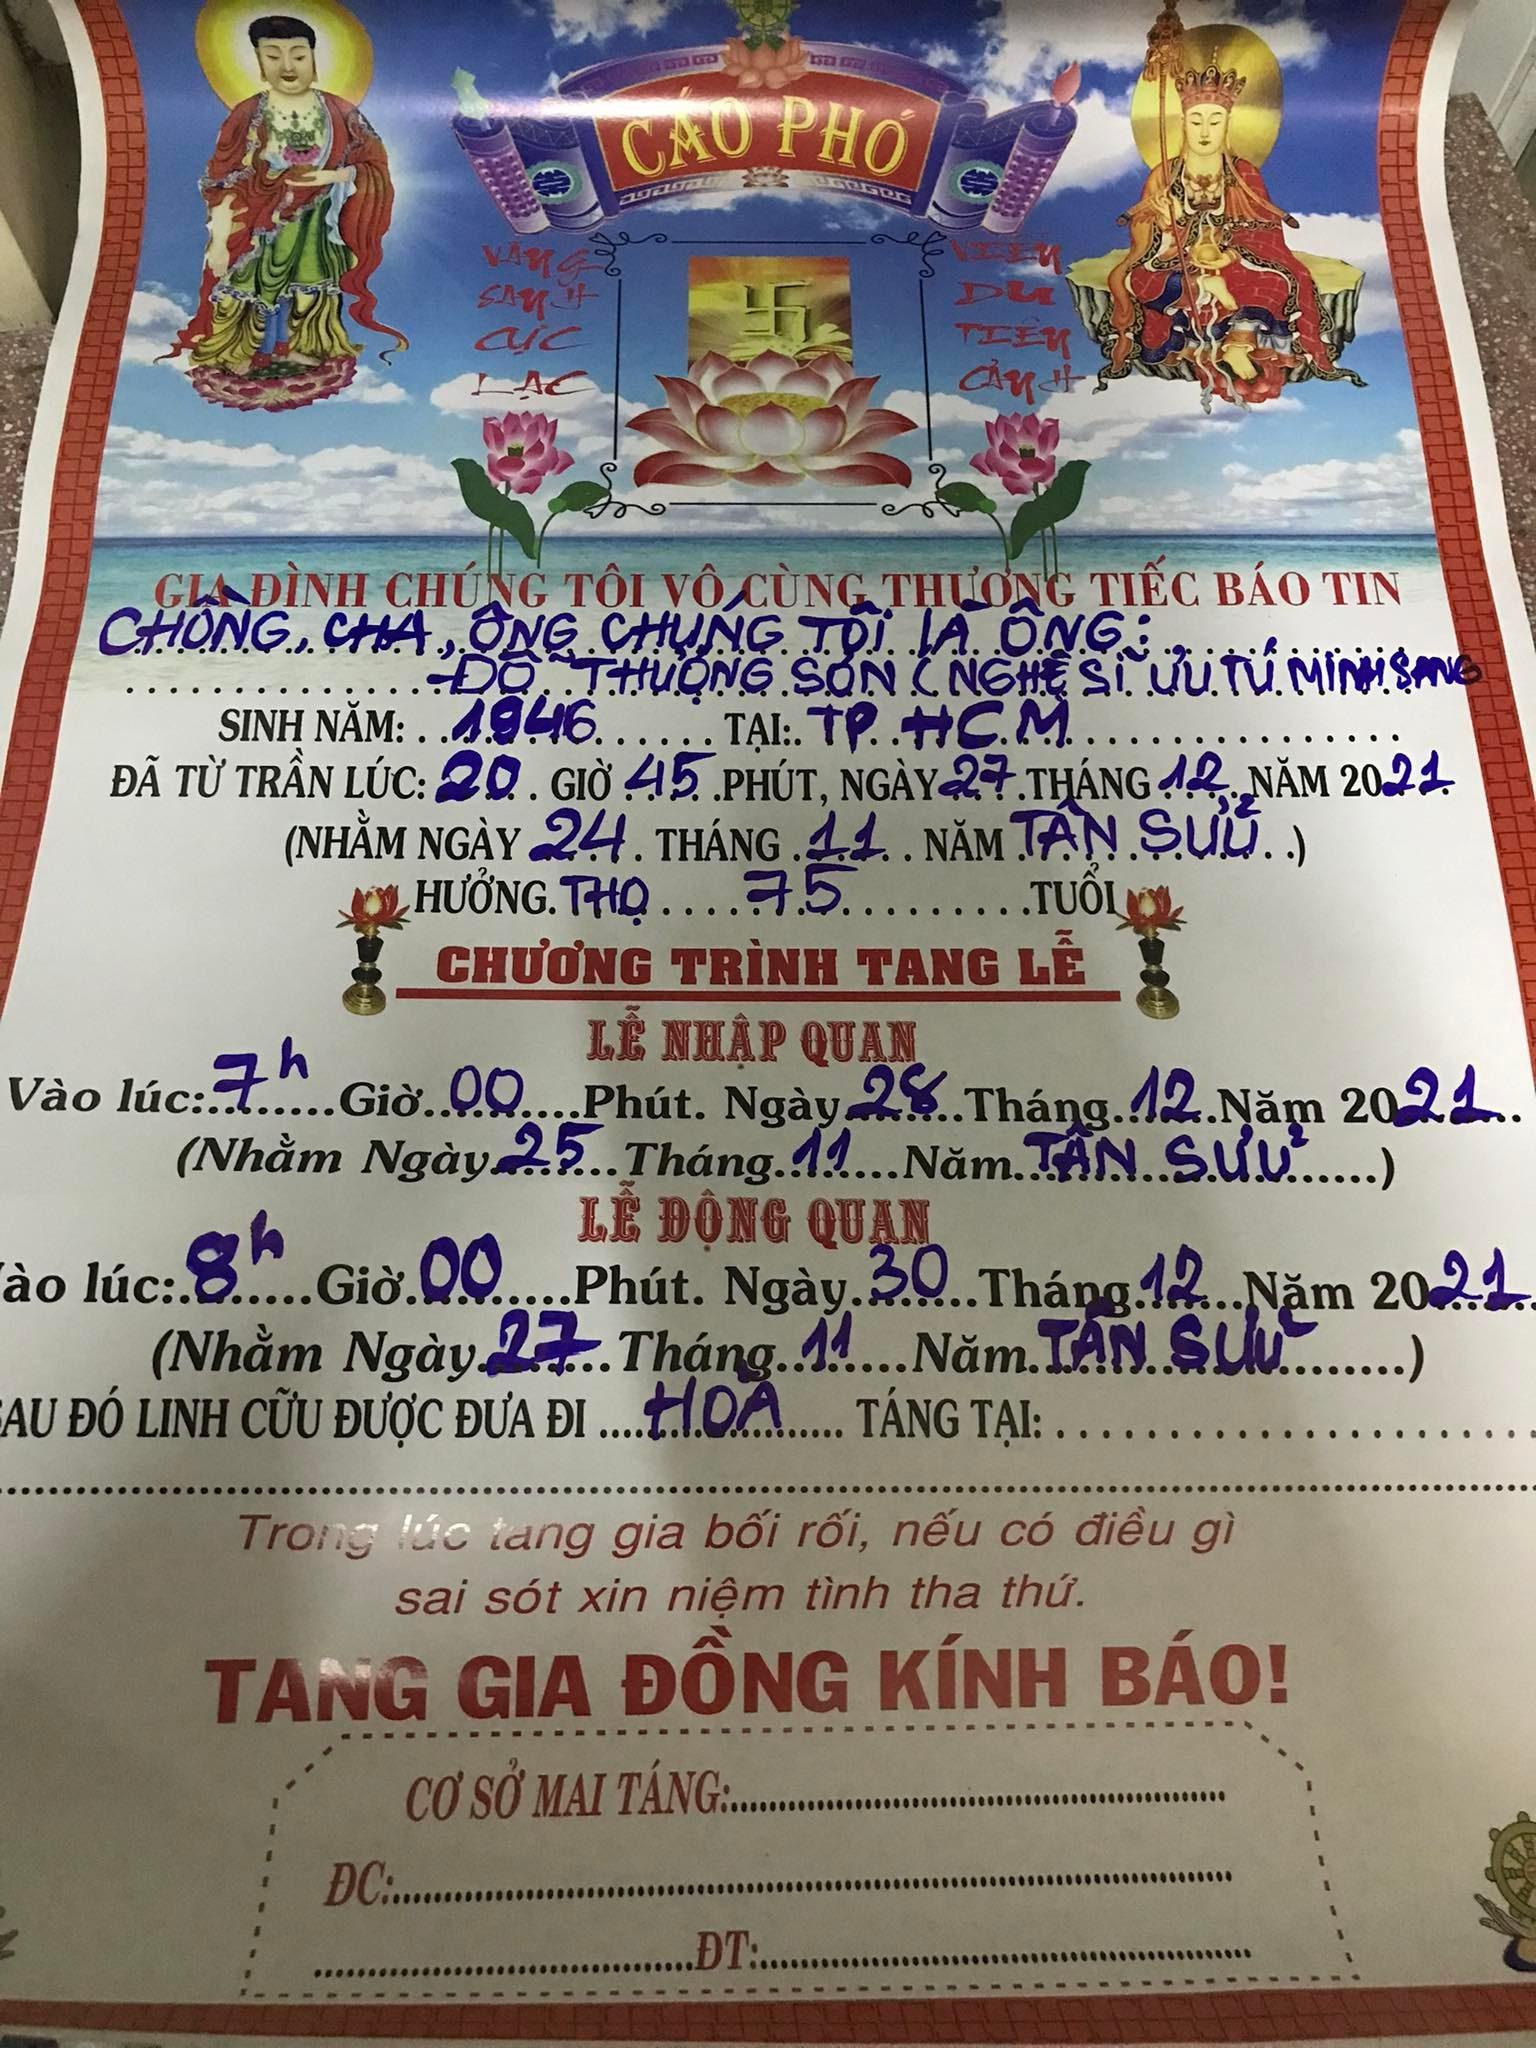 CÁO PHÓ
VÃNG SANH CỰC LẠC
VIỄN DU TIÊN CẢNH
GIA ĐÌNH CHÚNG TÔI VÔ CÙNG THƯƠNG TIẾC BÁO TIN
CHỒNG, CHA, ÔNG CHÚNG TÔI LÀ ÔNG:
ĐỖ THƯỢNG SƠN (NGHỆ SĨ ƯU TÚ MINH SANG
SINH NĂM: 1946 TẠI: TP HCM
ĐÃ TỪ TRẦN LÚC: 20 GIỜ 45 PHÚT, NGÀY 27 THÁNG 12 NĂM 2021
(NHẰM NGÀY 24 THÁNG 11 NĂM TÂN SỬU)
HƯỞNG THỌ 75 TUỔI
CHƯƠNG TRÌNH TANG LỄ
LỄ NHẬP QUAN
Vào lúc: 7h Giờ 00 Phút. Ngày 28 Tháng 12 Năm 2021
(Nhằm Ngày 25 Tháng 11 Năm TÂN SỬU)
LỄ ĐỘNG QUAN
Vào lúc: 8h Giờ 00 Phút. Ngày 30 Tháng 12 Năm 2021
(Nhằm Ngày 27 Tháng 11 Năm TÂN SỬU)
SAU ĐÓ LINH CỮU ĐƯỢC ĐƯA ĐI HOẢ TÁNG TẠI:
Trong lúc tang gia bối rối, nếu có điều gì
sai sót xin niệm tình tha thứ.
TANG GIA ĐỒNG KÍNH BÁO!
CƠ SỞ MAI TÁNG:
ĐC:
ĐT: